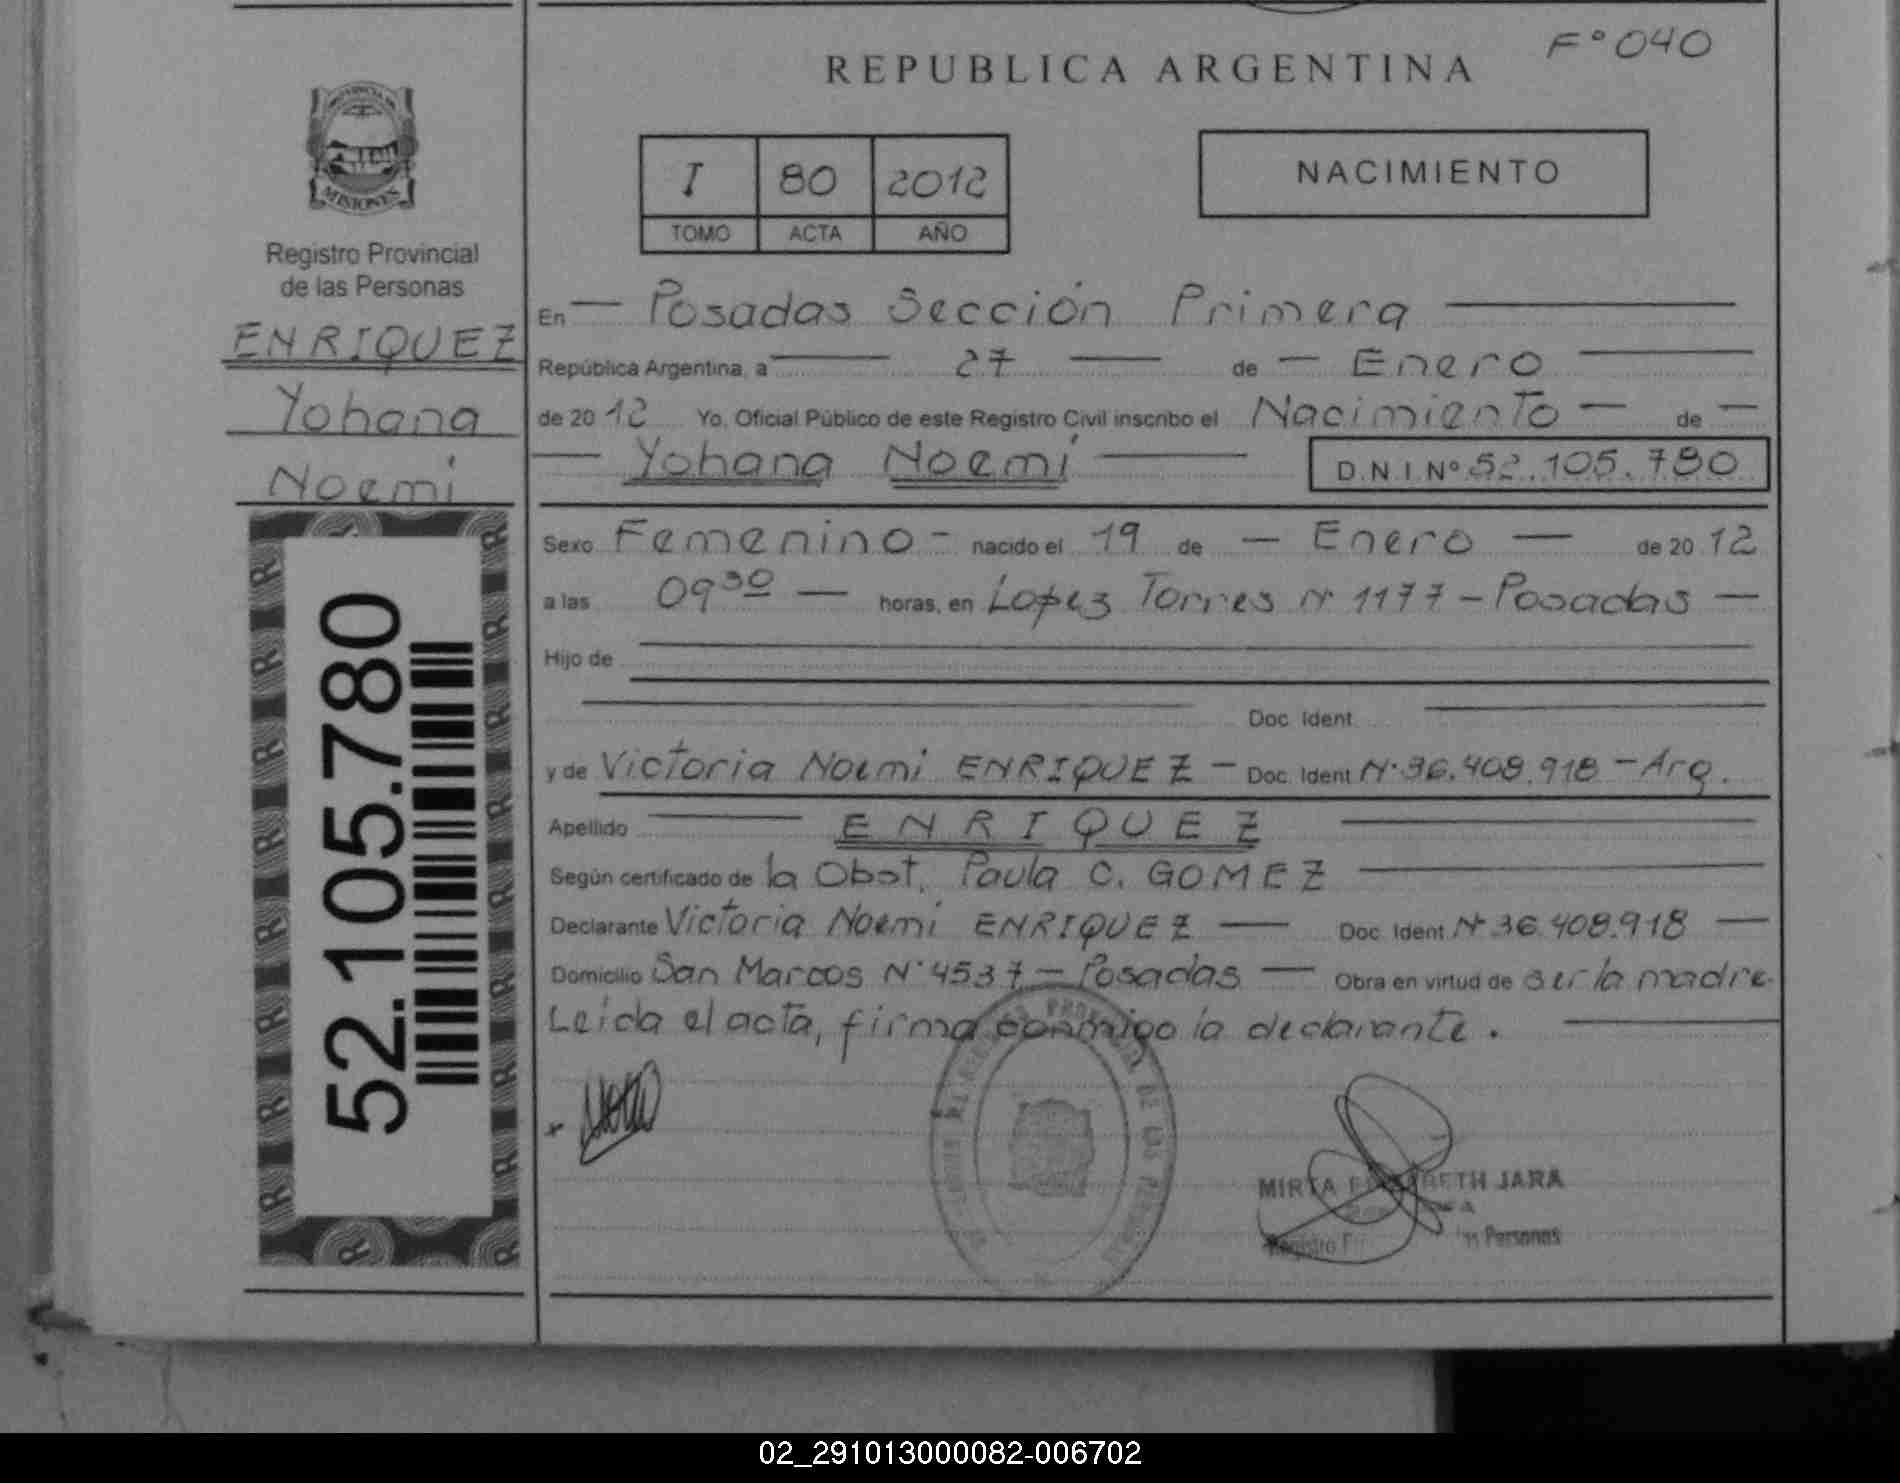 F° 040
REPUBLICA ARGENTINA
I 80 2012
TOMO ACTA AÑO
NACIMIENTO
PROVINCIA DE
MISIONES
Registro Provincial
de las Personas
ENRIQUEZ
Yohana
Noemí
52.105.780
En — Posadas Sección Primera —
República Argentina, a — 27 — de — Enero —
de 20 12 Yo, Oficial Público de este Registro Civil inscribo el Nacimiento — de —
— Yohana Noemí — D.N.I.N° 52.105.780
Sexo Femenino - nacido el 19 de — Enero — de 20 12
a las 09 30 — horas, en Lopez Torres N° 1177 - Posadas —
Hijo de
Doc. Ident.
y de Victoria Noemi ENRIQUEZ - Doc. Ident N° 36.408.918 - Arg.
Apellido — ENRIQUEZ —
Según certificado de la Obst. Paula C. GOMEZ —
Declarante Victoria Noemi ENRIQUEZ — Doc. Ident. N° 36.408.918 —
Domicilio San Marcos N° 4537 - Posadas — Obra en virtud de ser la madre.
Leída el acta, firma conmigo la declarante. —
x
MIRTA ELIZABETH JARA
Registro Personas
02_291013000082-006702